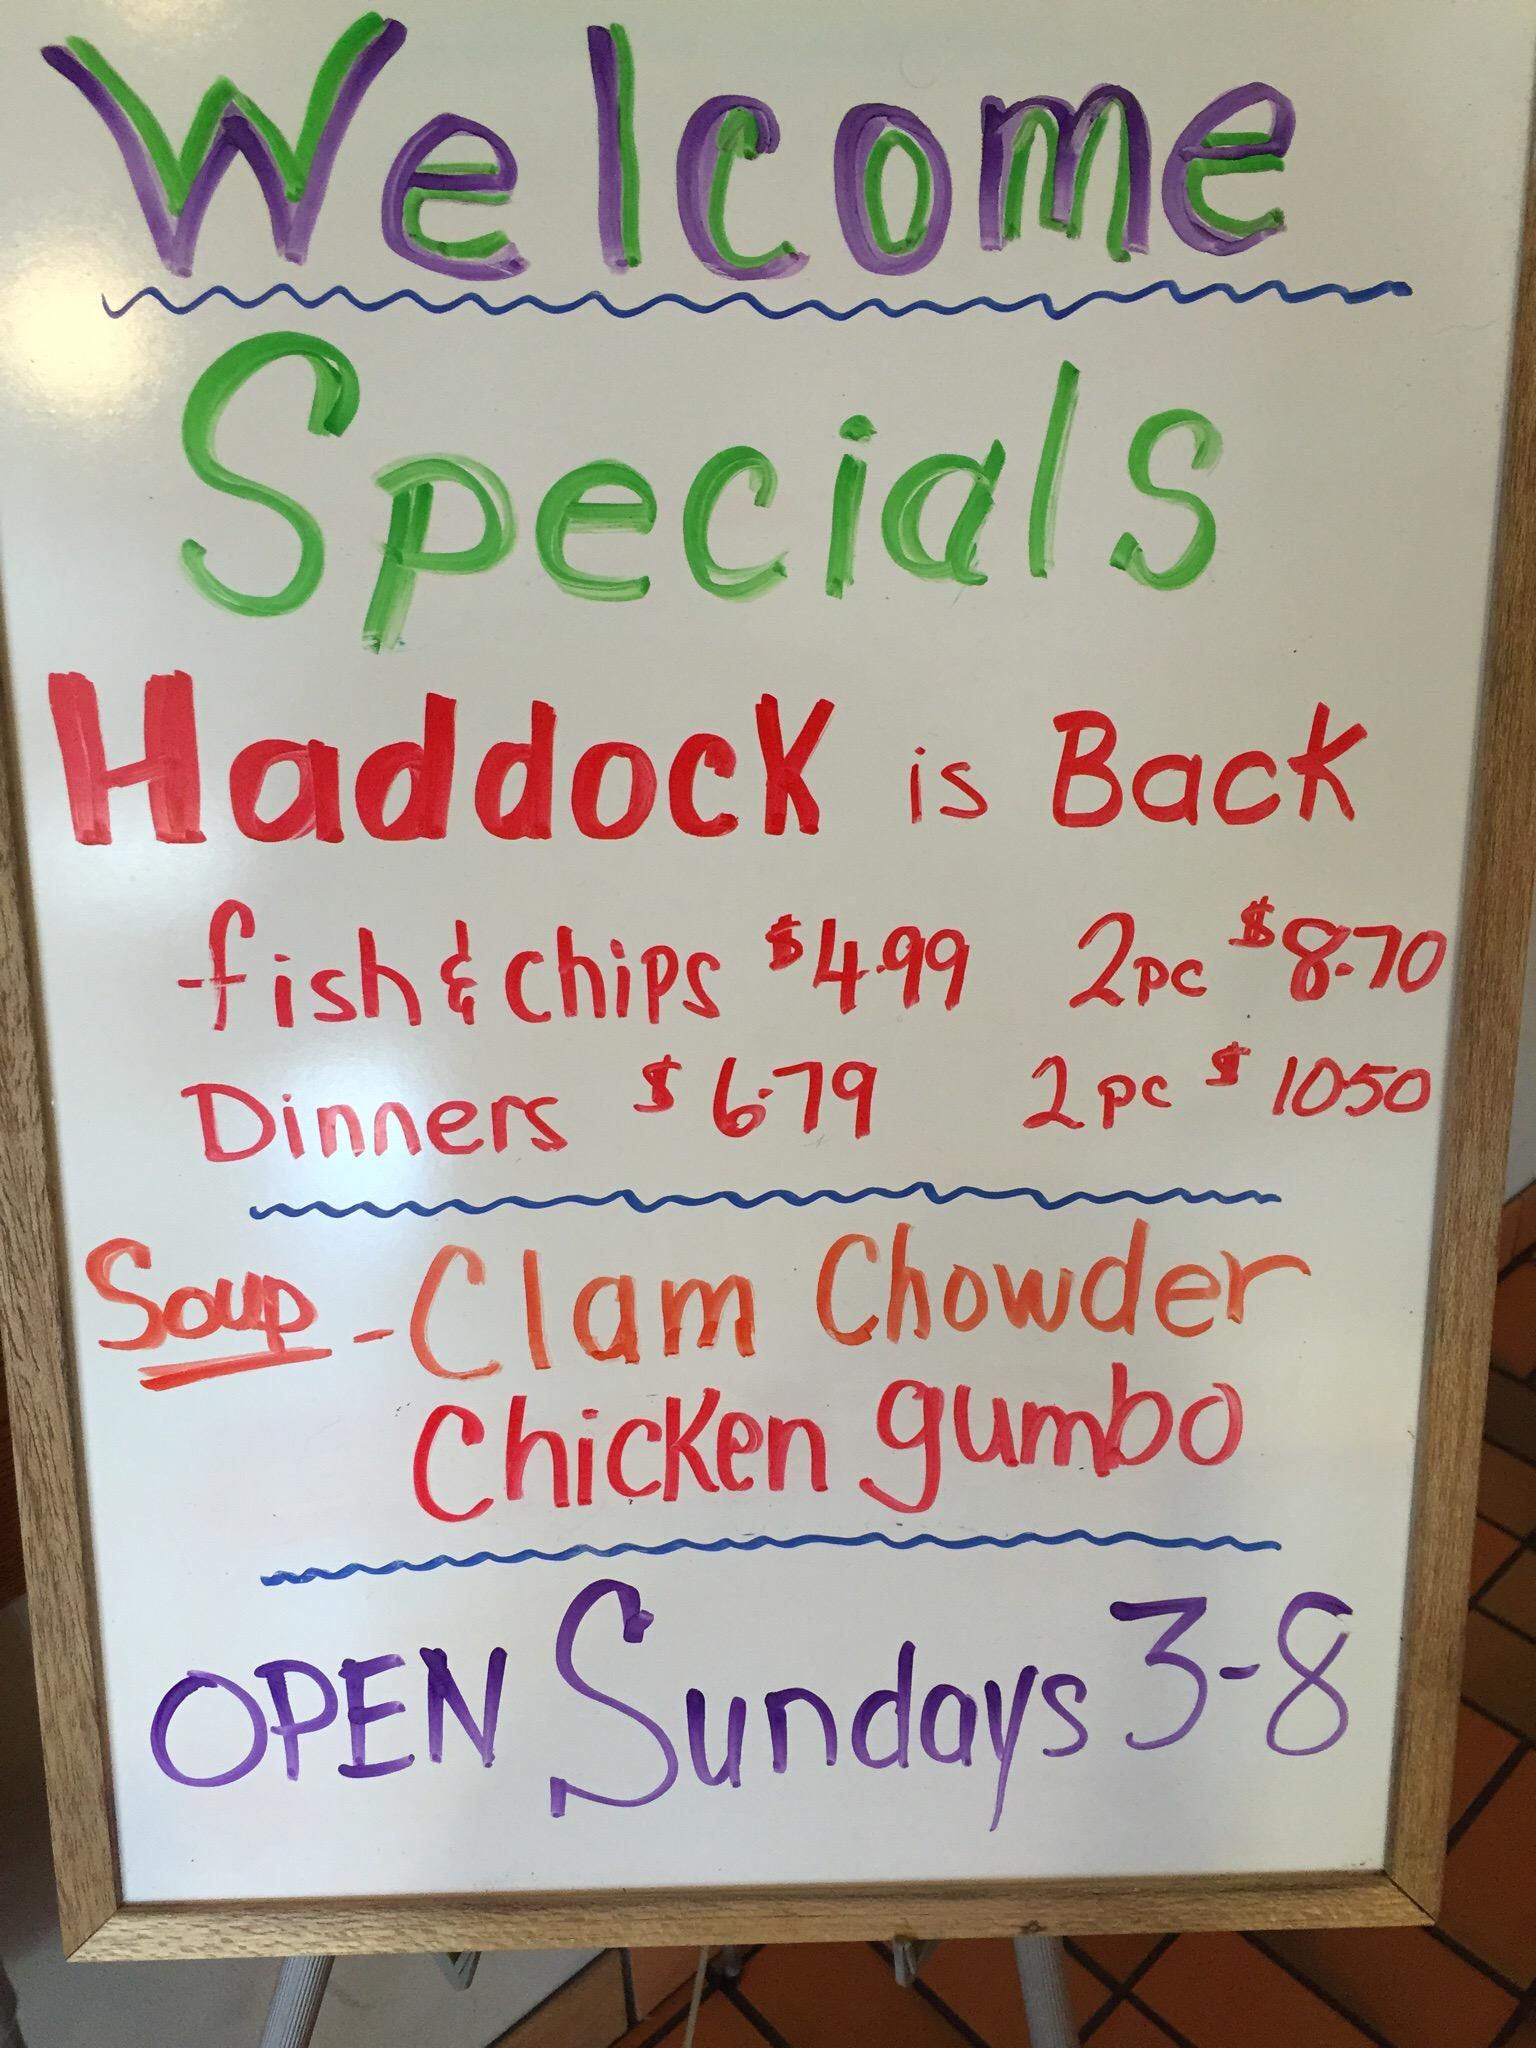 Welcome
Specials
Haddock is Back
fish & chips $4.99 2pc $8.70
Dinners $6.79 2pc $1050
Soup - Clam Chowder
Chicken gumbo
OPEN Sundays 3-8